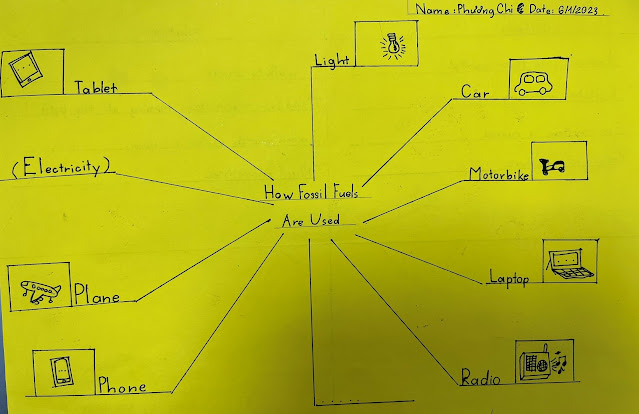 Name : Phương Chi C Date: 6/1/2023
Light
Tablet
Car
(Electricity)
Motorbike
How Fossil Fuels
Are Used
Laptop
Plane
Phone
Radio